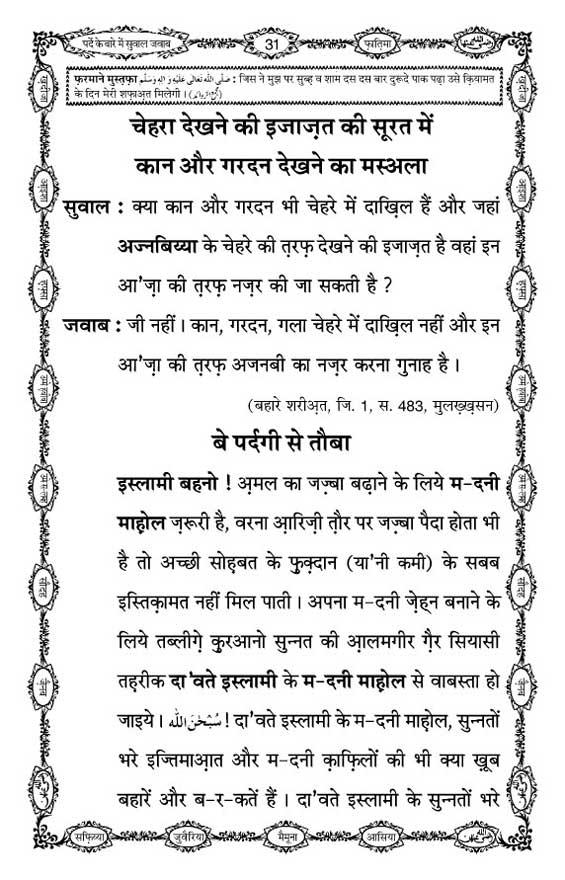 पर्दे के बारे में सुवाल जवाब
31
फ़ातिमा
फ़रमाने मुस्तफ़ा صَلَّى اللهُ تَعَالٰى عَلَيْهِ وَاٰلِهٖ وَسَلَّم : जिस ने मुझ पर सुब्ह व शाम दस दस बार दुरूदे पाक पढ़ा उसे क़ियामत
के दिन मेरी शफ़ाअ़त मिलेगी ।
चेहरा देखने की इजाज़त की सूरत में
कान और गरदन देखने का मस्अला
सुवाल : क्या कान और गरदन भी चेहरे में दाख़िल हैं और जहां
अज्नबिय्या के चेहरे की त़रफ़ देखने की इजाज़त है वहां इन
आ'ज़ा की त़रफ़ नज़र की जा सकती है ?
जवाब : जी नहीं । कान, गरदन, गला चेहरे में दाख़िल नहीं और इन
आ'ज़ा की त़रफ़ अजनबी का नज़र करना गुनाह है ।
(बहारे शरीअ़त, जि. 1, स. 483, मुलख़्ख़सन)
बे पर्दगी से तौबा
इस्लामी बहनो ! अ़मल का जज़्बा बढ़ाने के लिये म-दनी
माह़ोल ज़रूरी है, वरना आ़रिज़ी त़ौर पर जज़्बा पैदा होता भी
है तो अच्छी सोह़बत के फ़ुक़्दान (या'नी कमी) के सबब
इस्तिक़ामत नहीं मिल पाती । अपना म-दनी ज़ेह्न बनाने के
लिये तब्लीगे़ क़ुरआनो सुन्नत की आ़लमगीर ग़ैर सियासी
तह़रीक दा'वते इस्लामी के म-दनी माह़ोल से वाबस्ता हो
जाइये । سُبْحٰنَ اللّٰه ! दा'वते इस्लामी के म-दनी माह़ोल, सुन्नतों
भरे इज्तिमाआ़त और म-दनी क़ाफ़िलों की भी क्या ख़ूब
बहारें और ब-र-कतें हैं । दा'वते इस्लामी के सुन्नतों भरे
सफ़िय्या
जुवैरिया
मैमूना
आसिया